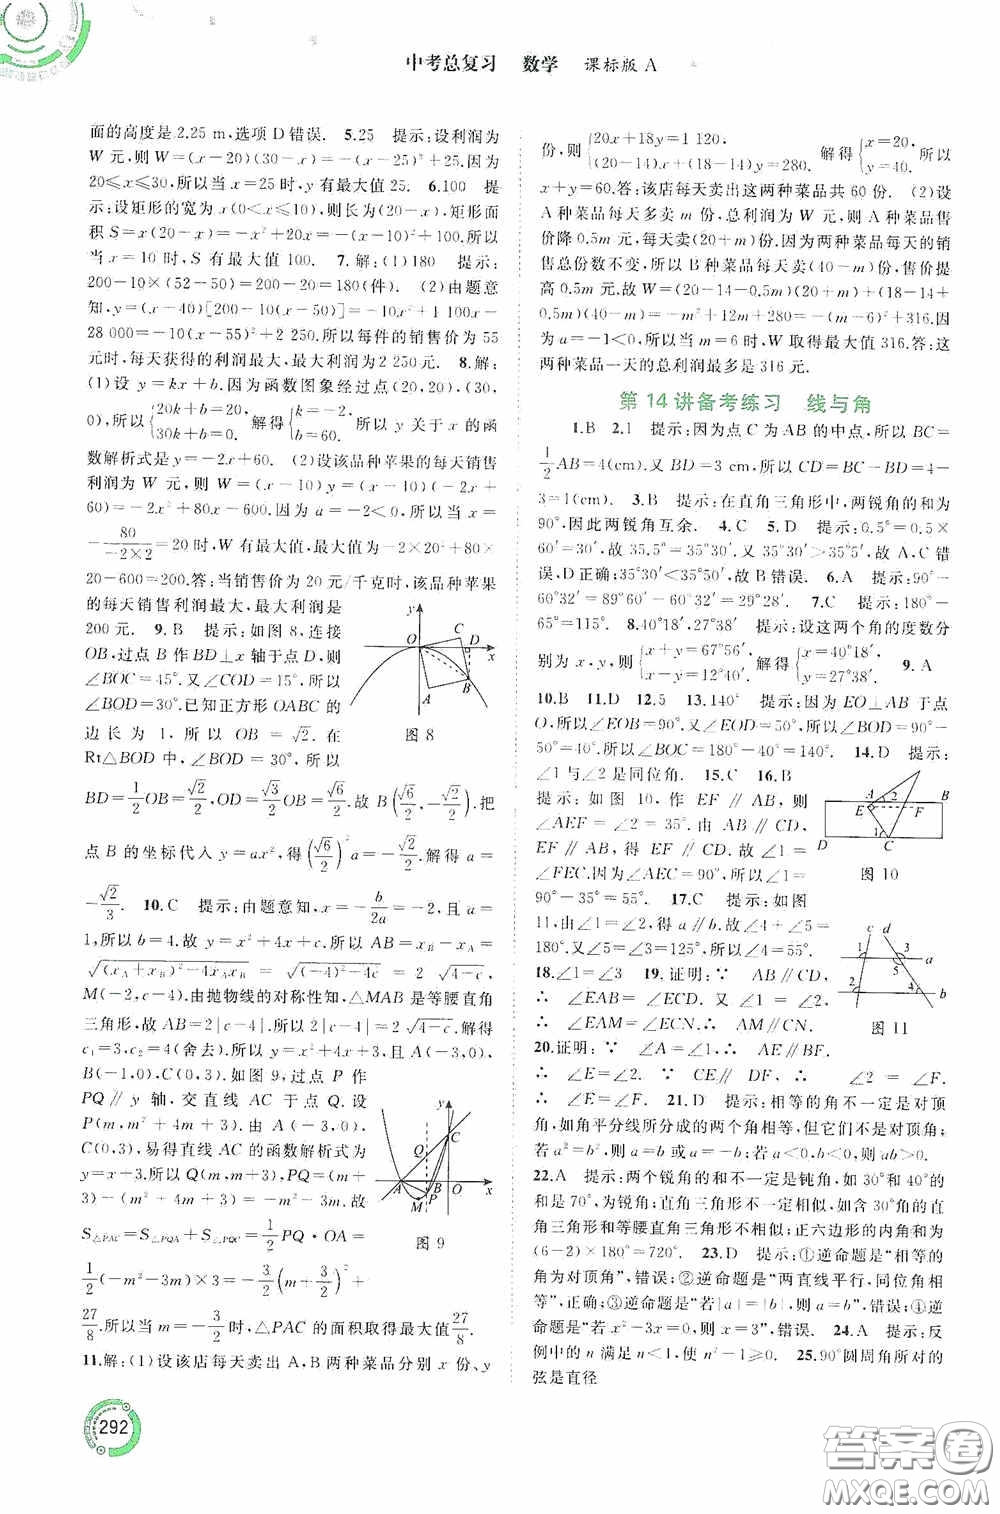 中考总复习 数学 课标版 A
面的高度是 2.25 m,选项 D 错误. 5.25 提示:设利润为
W 元,则 W=(x-20)(30-x)=-(x-25)²+25.因为
20≤x≤30,所以当 x=25 时,y 有最大值 25. 6.100 提
示:设矩形的宽为 x(0<x≤10),则长为(20-x),矩形面
积 S=x(20-x)=-x²+20x=-(x-10)²+100.所以
当 x=10 时,S 有最大值 100. 7.解:(1)180 提示:
200-10×(52-50)=200-20=180(件). (2)由题意
知,y=(x-40)[200-10(x-50)]=-10x²+1 100x-
28 000=-10(x-55)²+2 250.所以每件的销售价为 55
元时,每天获得的利润最大,最大利润为 2 250 元. 8.解:
(1)设 y=kx+b.因为函数图象经过点(20,20),(30,
0),所以{20k+b=20, 30k+b=0. 解得{k=-2, b=60. 所以 y 关于 x 的函
数解析式是 y=-2x+60. (2)设该品种苹果的每天销售
利润为 W 元,则 W=(x-10)y=(x-10)(-2x+
60)=-2x²+80x-600.因为 a=-2<0,所以当 x=
-80/(-2×2)=20 时,W 有最大值,最大值为-2×20²+80×
20-600=200.答:当销售价为 20 元/千克时,该品种苹果
的每天销售利润最大,最大利润是
200 元. 9.B 提示:如图 8,连接
OB,过点 B 作 BD⊥x 轴于点 D,则
∠BOC=45°.又∠COD=15°,所以
∠BOD=30°.已知正方形 OABC 的
边长为 1,所以 OB=√2.在
Rt△BOD 中,∠BOD=30°,所以
y O C D x B A
图 8
BD=1/2 OB=√2/2,OD=√3/2 OB=√6/2.故 B(√6/2,-√2/2).把
点 B 的坐标代入 y=ax²,得(√6/2)² a=-√2/2.解得 a=
-√2/3. 10.C 提示:由题意知,x=-b/2a=-2,且 a=
1,所以 b=4.故 y=x²+4x+c,所以 AB=x_B-x_A=
√((x_A+x_B)²-4x_A x_B)=√((-4)²-4c)=2√(4-c),
M(-2,c-4).由抛物线的对称性知,△MAB 是等腰直角
三角形,故 AB=2|c-4|.所以 2|c-4|=2√(4-c).解得
c₁=3,c₂=4(舍去).所以 y=x²+4x+3,且 A(-3,0),
B(-1,0),C(0,3).如图 9,过点 P 作
PQ∥y 轴,交直线 AC 于点 Q.设
P(m,m²+4m+3).由 A(-3,0),
C(0,3),易得直线 AC 的函数解析式为
y=x+3.所以 Q(m,m+3),PQ=(m+
3)-(m²+4m+3)=-m²-3m.故
S△PAC=S△PQA+S△PQC=1/2 PQ·OA=
y C Q A B O x M P
图 9
1/2(-m²-3m)×3=-3/2(m+3/2)²+
27/8.所以当 m=-3/2时,△PAC 的面积取得最大值27/8.
11.解:(1)设该店每天卖出 A,B 两种菜品分别 x 份、y
份,则{20x+18y=1 120, (20-14)x+(18-14)y=280. 解得{x=20, y=40. 所以
x+y=60.答:该店每天卖出这两种菜品共 60 份. (2)设
A 种菜品每天多卖 m 份,总利润为 W 元,则 A 种菜品售
价降 0.5m 元,每天卖(20+m)份.因为两种菜品每天的销
售总份数不变,所以 B 种菜品每天卖(40-m)份,售价提
高 0.5m 元.故 W=(20-14-0.5m)(20+m)+(18-14+
0.5m)(40-m)=-m²+12m+280=-(m-6)²+316.因
为 a=-1<0,所以当 m=6 时,W 取得最大值 316.答:这
两种菜品一天的总利润最多是 316 元.
第 14 讲备考练习 线与角
1.B 2.1 提示:因为点 C 为 AB 的中点,所以 BC=
1/2 AB=4(cm).又 BD=3 cm,所以 CD=BC-BD=4-
3=1(cm). 3.B 提示:在直角三角形中,两锐角的和为
90°,因此两锐角互余. 4.C 5.D 提示:0.5°=0.5×
60′=30′,故 35.5°=35°30′.又 35°30′>35°5′,故 A,C 错
误,D 正确;35°30′<35°50′,故 B 错误. 6.A 提示:90°-
60°32′=89°60′-60°32′=29°28′. 7.C 提示:180°-
65°=115°. 8.40°18′,27°38′ 提示:设这两个角的度数分
别为 x,y,则{x+y=67°56′, x-y=12°40′. 解得{x=40°18′, y=27°38′. 9.A
10.B 11.D 12.5 13.140° 提示:因为 EO⊥AB 于点
O,所以∠EOB=90°.又∠EOD=50°,所以∠BOD=90°-
50°=40°.所以∠BOC=180°-40°=140°. 14.D 提示:
∠1 与∠2 是同位角. 15.C 16.B
提示:如图 10,作 EF∥AB,则
∠AEF=∠2=35°.由 AB∥CD,
EF∥AB,得 EF∥CD.故∠1=
∠FEC.因为∠AEC=90°,所以∠1=
90°-35°=55°. 17.C 提示:如图
A 2 B E F 1 D C
图 10
11,由∠1=∠2,得 a∥b.故∠4+∠5=
180°.又∠5=∠3=125°,所以∠4=55°.
18.∠1=∠3 19.证明:∵ AB∥CD,
∴ ∠EAB=∠ECD.又∠1=∠2,
∴ ∠EAM=∠ECN.∴ AM∥CN.
c d 1 3 a 5 2 4 b
图 11
20.证明:∵ ∠A=∠1,∴ AE∥BF.
∴ ∠E=∠2.∵ CE∥DF,∴ ∠2=∠F.
∴ ∠E=∠F. 21.D 提示:相等的角不一定是对顶
角,如角平分线所分成的两个角相等,但它们不是对顶角;
若 a²=b²,则 a=b 或 a=-b;若 a>0,b<0,则 ab>0.
22.A 提示:两个锐角的和不一定是钝角,如 30°和 40°
的和是 70°,为锐角;直角三角形不一定相似,如含 30°角的直
角三角形和等腰直角三角形不相似;正六边形的内角和为
(6-2)×180°=720°. 23.D 提示:①逆命题是“相等的
角为对顶角”,错误;②逆命题是“两直线平行,同位角相
等”,正确;③逆命题是“若|a|=|b|,则 a=b”,错误;④逆
命题是“若 x²-3x=0,则 x=3”,错误. 24.A 提示:反
例中的 n 满足 n<1,使 n²-1≥0. 25.90°圆周角所对的
弦是直径
292
答案圈
MXQE.COM